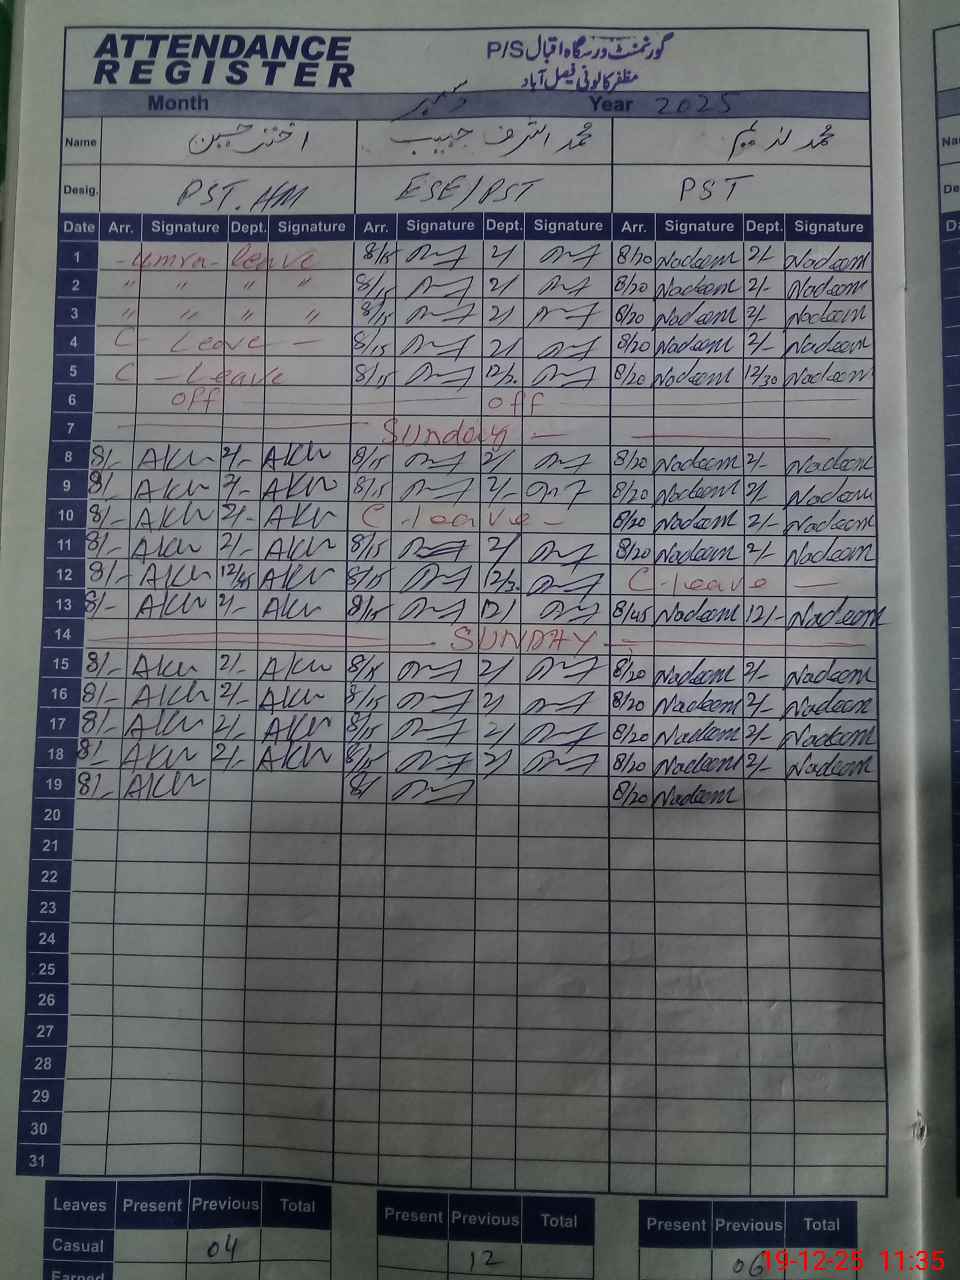 ATTENDANCE REGISTER
گورنمنٹ درسگاہ اقبال P/S
مظفر کالونی فیصل آباد
Month دسمبر Year 2025
Name اختر حسین محمد اشرف حبیب محمد ندیم
Desig. PST.HM ESE/PST PST
Date Arr. Signature Dept. Signature Arr. Signature Dept. Signature Arr. Signature Dept. Signature
1 - Umra - leave 8/15 2/ 8/20 Nadeem 2/- Nadeem
2 " " " " 8/15 2/ 8/20 Nadeem 2/- Nadeem
3 " " " " 8/15 2/ 8/20 Nadeem 2/- Nadeem
4 C - Leave - 8/15 2/ 8/20 Nadeem 2/- Nadeem
5 C - Leave 8/15 8/20 Nadeem 12/30 Nadeem
6 off off
7 Sunday -
8 8/- AKW 2/- AKW 8/15 2/ 8/20 Nadeem 2/- Nadeem
9 8/- AKW 2/- AKW 8/15 2/- 8/20 Nadeem 2/- Nadeem
10 8/- AKW 2/- AKW C - leave - 8/20 Nadeem 2/- Nadeem
11 8/- AKW 2/- AKW 8/15 2/ 8/20 Nadeem 2/- Nadeem
12 8/- AKW 12/45 AKW 8/15 C - leave -
13 8/- AKW 2/- AKW 8/15 12/ 8/45 Nadeem 12/- Nadeem
14 SUNDAY
15 8/- AKW 2/- AKW 8/15 2/ 8/20 Nadeem 2/- Nadeem
16 8/- AKW 2/- AKW 8/15 2/ 8/20 Nadeem 2/- Nadeem
17 8/- AKW 2/- AKW 8/15 2/ 8/20 Nadeem 2/- Nadeem
18 8/- AKW 2/- AKW 8/15 2/ 8/20 Nadeem 2/- Nadeem
19 8/- AKW 8/ 8/20 Nadeem
20
21
22
23
24
25
26
27
28
29
30
31
Leaves Present Previous Total Present Previous Total Present Previous Total
Casual 04 12 06
Earned
19-12-25 11:35